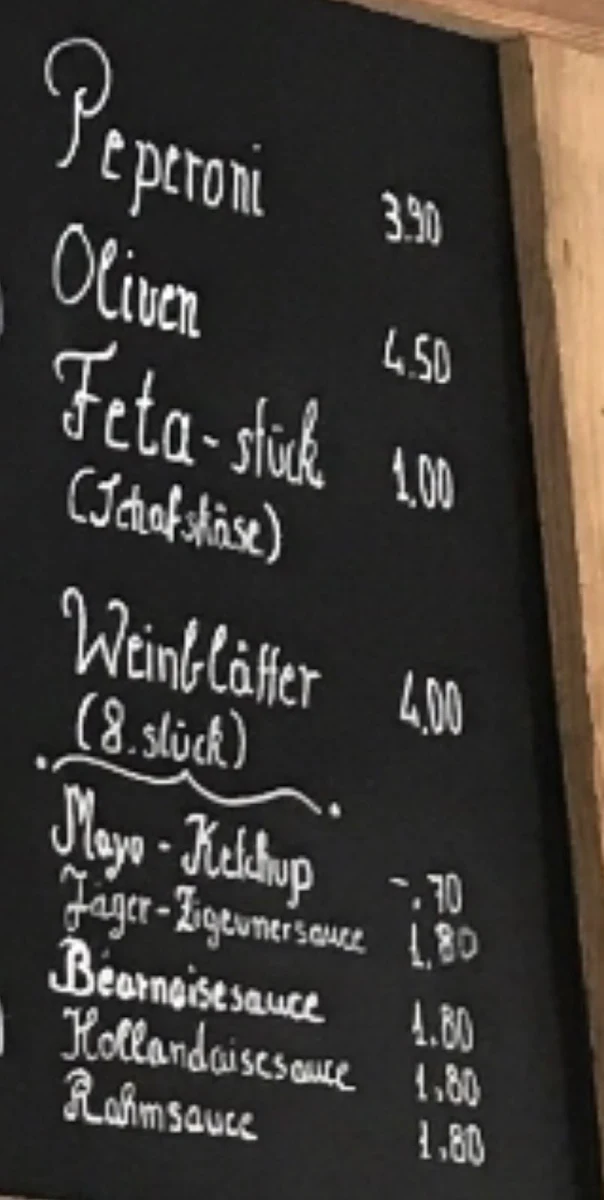 Peperoni 3.90
Oliven 4.50
Feta-stück 1.00
(Schafskäse)
Weinblätter 4.00
(8.stück)
Mayo - Ketchup -.70
Jäger-Zigeunersauce 1.80
Béarnaisesauce 1.80
Hollandaisesauce 1.80
Rahmsauce 1.80